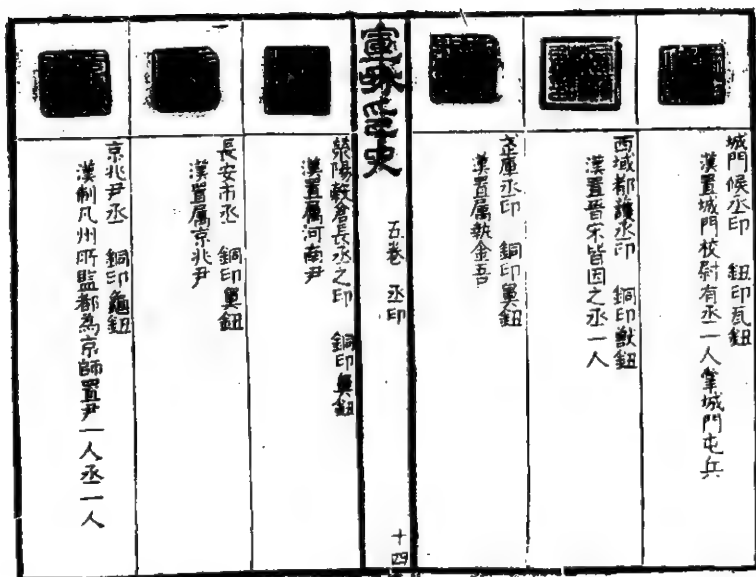 城門候丞印 鈕印瓦鈕
漢置城門校尉有丞一人掌城門屯兵
西域都護丞印 銅印獸鈕
漢置晉宋皆因之丞一人
武庫丞印 銅印鼻鈕
漢置屬執金吾
宣和印史 五卷 丞印 十四
滎陽敖倉長丞之印 銅印鼻鈕
漢置屬河南尹
長安市丞 銅印鼻鈕
漢置屬京兆尹
京兆尹丞 銅印龜鈕
漢制凡州所監都為京師置尹一人丞一人